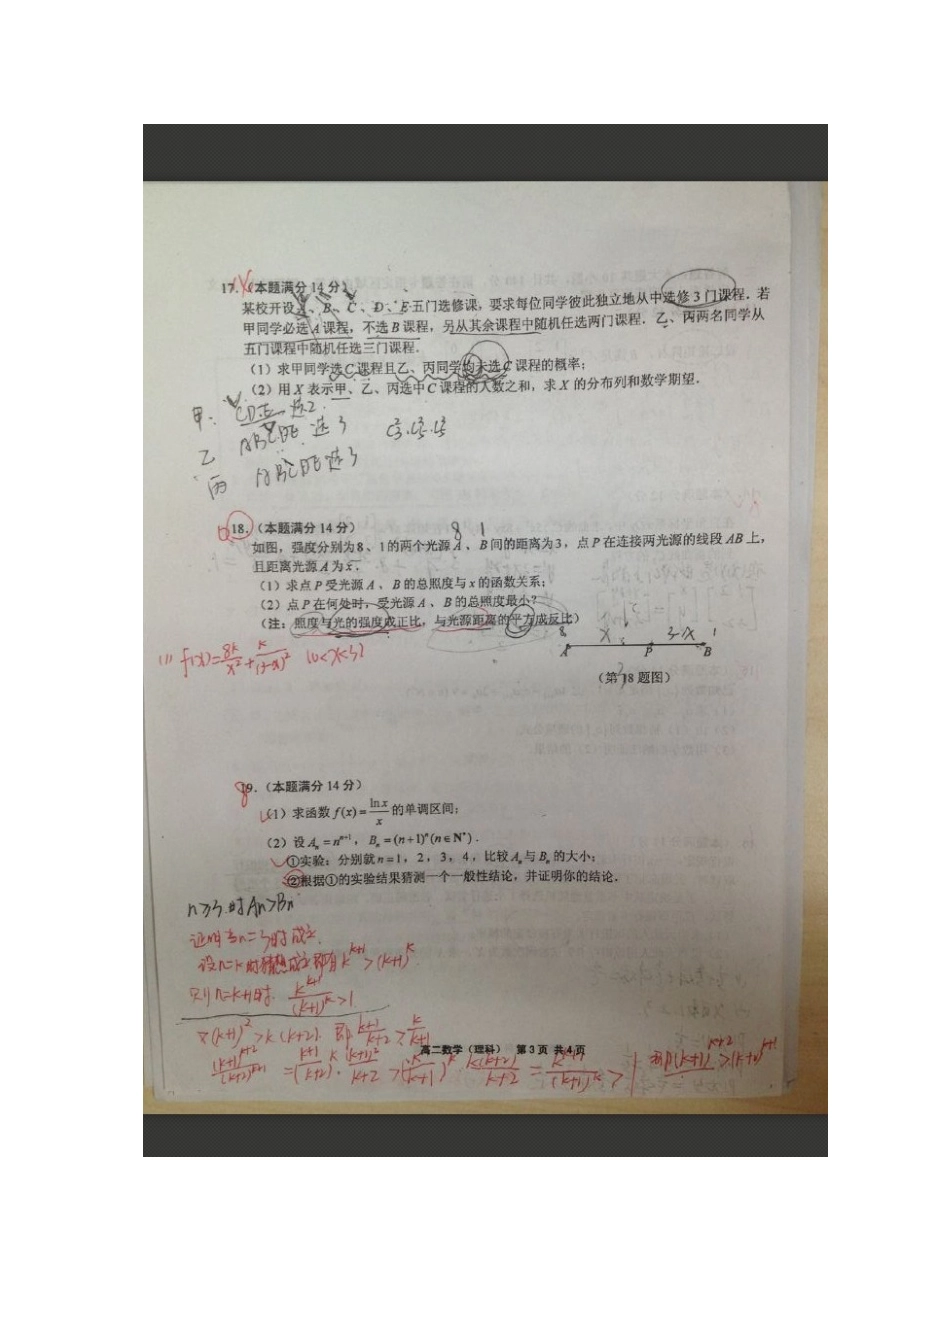 17.（本题满分14分）
某校开设A、B、C、D、E五门选修课，要求每位同学彼此独立地从中选修3门课程．若
甲同学必选A课程，不选B课程，另从其余课程中随机任选两门课程．乙、丙两名同学从
五门课程中随机任选三门课程．
（1）求甲同学选C课程且乙、丙同学均未选C课程的概率；
（2）用X表示甲、乙、丙选中C课程的人数之和，求X的分布列和数学期望．
甲： CDE 选2．
乙 ABCDE 选3
丙 ABCDE选3
18.（本题满分14分）
8 1
如图，强度分别为8、1的两个光源A、B间的距离为3，点P在连接两光源的线段AB上，
且距离光源A为x．
（1）求点P受光源A、B的总照度与x的函数关系；
（2）点P在何处时，受光源A、B的总照度最小？
（注：照度与光的强度成正比，与光源距离的平方成反比）
8 x 3-x 1
A P B
(1) f(x)=8k/x²+k/(3-x)² (0<x<3)
（第18题图）
19.（本题满分14分）
（1）求函数f(x)=ln x/x的单调区间；
（2）设Aₙ=nⁿ⁺¹，Bₙ=(n+1)ⁿ(n∈N*)．
①实验：分别就n=1，2，3，4，比较Aₙ与Bₙ的大小；
②根据①的实验结果猜测一个一般性结论，并证明你的结论．
n≥3时An>Bn
证明当n=3时成立.
设n=k时猜想成立即有k^(k+1)>(k+1)^k
则n=k+1时 k^(k+1)/(k+1)^k>1
又(k+1)²>k(k+2) 即(k+1)/(k+2)>k/(k+1)
高二数学（理科） 第3页 共4页